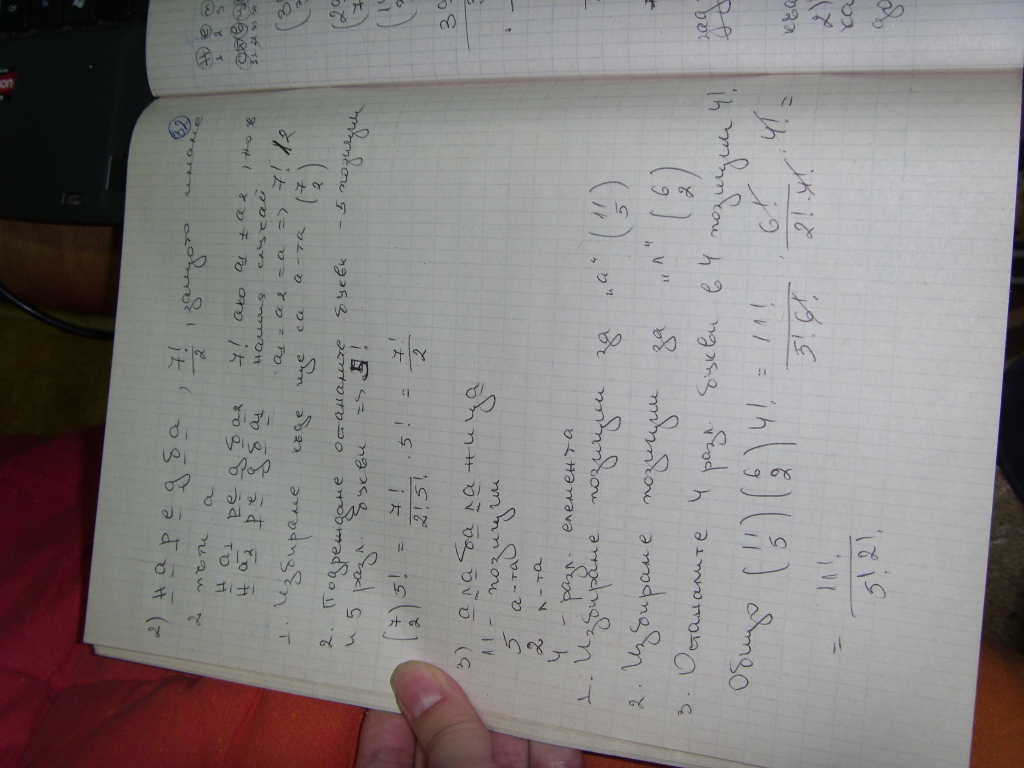 32
2) наредба, 7!/2, защото имаме
2 пъти а
на₁редба₂ 7! ако a₁ ≠ a₂, но в
на₂редба₁ нашия случай
a₁ = a₂ = a => 7!/2
1. Избиране къде ще са а-та (7 2)
2. Подреждане останалите букви - 5 позиции
и 5 разл. букви => 5!
(7 2) 5! = 7!/2!5! . 5! = 7!/2
3) алабаланица
11 - позиции
5 а-та
2 л-та
4 - разл. елемента
1. Избиране позиции за "а" (11 5)
2. Избиране позиции за "л" (6 2)
3. Останалите 4 разл. букви в 4 позиции 4!
Общо (11 5) (6 2) 4! = 11!/5!6! . 6!/2!.4! . 4! =
= 11!/5!2!